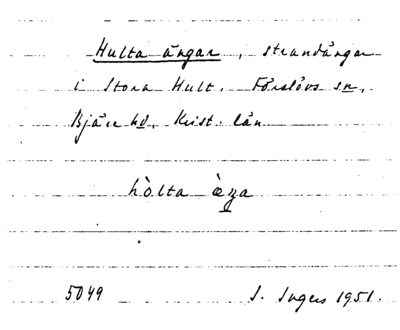 Hulta ängar, strandängar
i Stora Hult. Förslövs sn,
Bjäre hd, Krist. län
hòlta èŋa
5049 I. Ingers 1951.